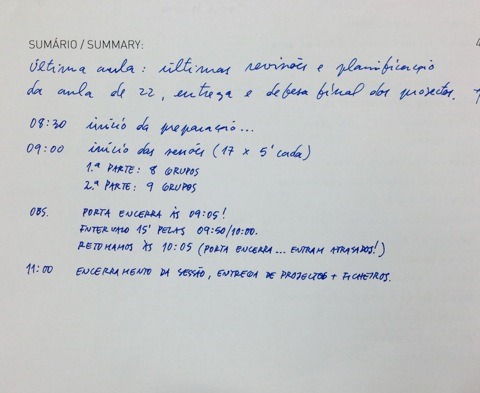 SUMÁRIO / SUMMARY:
última aula: últimas revisões e planificação
da aula de 22, entrega e defesa final dos projectos.
08:30 início da preparação...
09:00 início das sessões (17 x 5' cada)
1.ª PARTE: 8 GRUPOS
2.ª PARTE: 9 GRUPOS
OBS. PORTA ENCERRA ÀS 09:05!
INTERVALO 15' PELAS 09:50/10:00.
RETOMAMOS ÀS 10:05 (PORTA ENCERRA... ENTRAM ATRASADOS!)
11:00 ENCERRAMENTO DA SESSÃO, ENTREGA DE PROJECTOS + FICHEIROS.